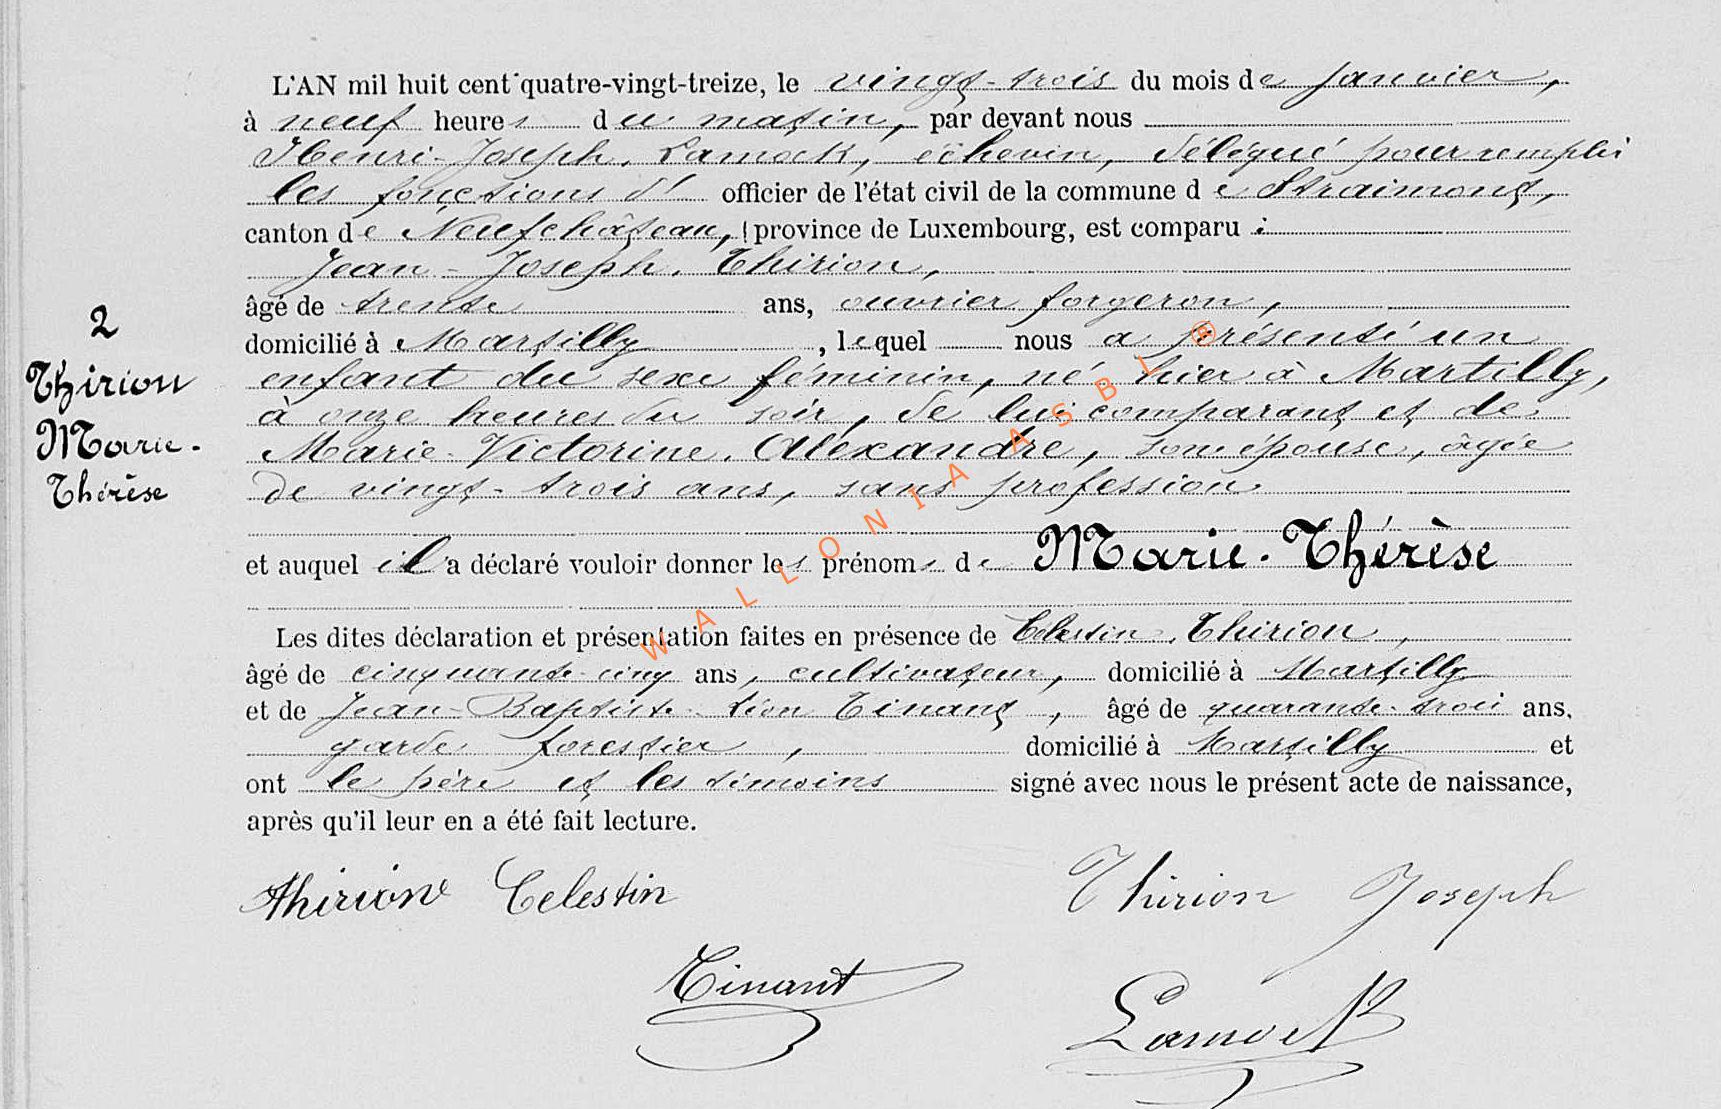 L'AN mil huit cent quatre-vingt-treize, le vingt-trois du mois de janvier,
à neuf heures du matin, par devant nous
Henri-Joseph Lamock, échevin, délégué pour remplir
les fonctions d' officier de l'état civil de la commune de Straimont,
canton de Neufchâteau, province de Luxembourg, est comparu :
Jean-Joseph Thirion,
âgé de trente ans, ouvrier forgeron,
domicilié à Martilly, lequel nous a présenté un
2
Thirion
Marie-
Thérèse
enfant du sexe féminin, né hier à Martilly,
à onze heures du soir, de lui comparant et de
Marie-Victorine Alexandre, son épouse, âgée
de vingt-trois ans, sans profession
et auquel il a déclaré vouloir donner les prénoms de Marie-Thérèse
Les dites déclaration et présentation faites en présence de Celestin Thirion,
âgé de cinquante-cinq ans, cultivateur, domicilié à Martilly
et de Jean-Baptiste- Tinant, âgé de quarante-trois ans,
garde forestier, domicilié à Martilly et
ont le père et les témoins signé avec nous le présent acte de naissance,
après qu'il leur en a été fait lecture.
Thirion Celestin
Thirion Joseph
Tinant
Lamock
WALLONIA ASBL ®